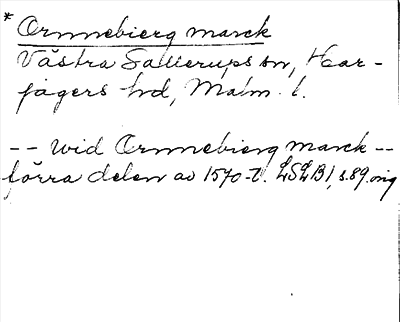 * Ormnebierg marck
Västra Sallerups sn, Har-
jagers hd, Malm. l.
-- wid Ormnebierg marck --
förra delen av 1570-t. LSLB1, s.89 orig